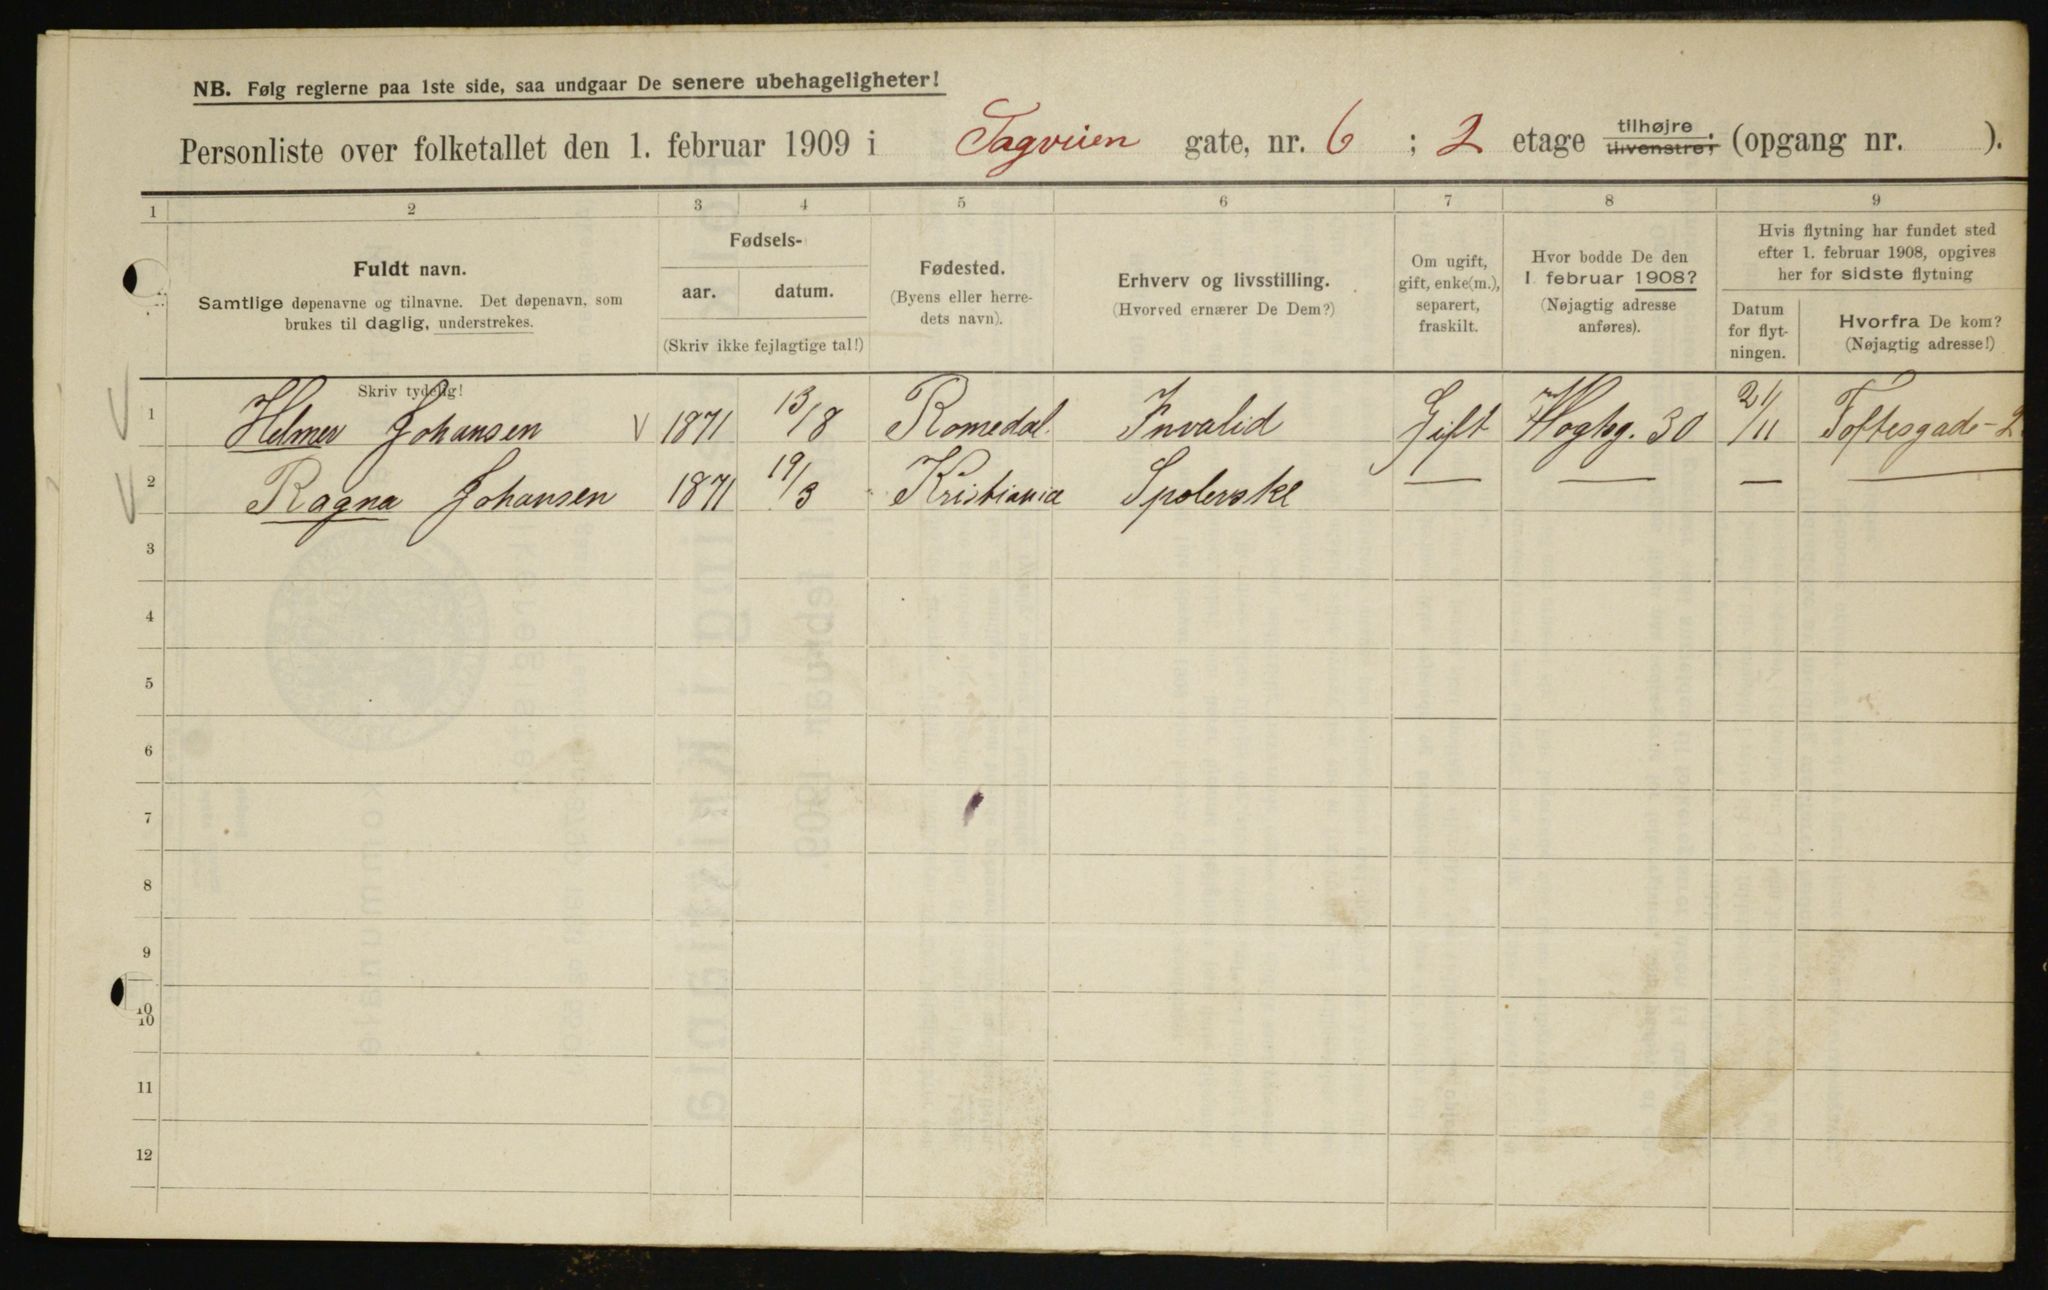 NB. Følg reglerne paa 1ste side, saa undgaar De senere ubehageligheter!
Personliste over folketallet den 1. februar 1909 i Sagveien gate, nr. 6 ; 2 etage tilhøjre, tilvenstre, (opgang nr. ).
1 2 3 4 5 6 7 8 9
Fuldt navn.
Samtlige døpenavne og tilnavne. Det døpenavn, som
brukes til daglig, understrekes.
Skriv tydelig!
Fødsels-
aar. datum.
(Skriv ikke fejlagtige tal!)
Fødested.
(Byens eller herre-
dets navn).
Erhverv og livsstilling.
(Hvorved ernærer De Dem?)
Om ugift,
gift, enke(m.),
separert,
fraskilt.
Hvor bodde De den
1 februar 1908?
(Nøjagtig adresse
anføres).
Hvis flytning har fundet sted
efter 1. februar 1908, opgives
her for sidste flytning
Datum
for flyt-
ningen.
Hvorfra De kom?
(Nøjagtig adresse!)
1 Helmer Johansen V 1871 13/8 Romedal Invalid Gift Vogtsg. 30 21/11 Toftesgade - 2
2 Ragna Johansen 1871 19/3 Kristiania Spolerske — — — —
3
4
5
6
7
8
9
10
10
11
12